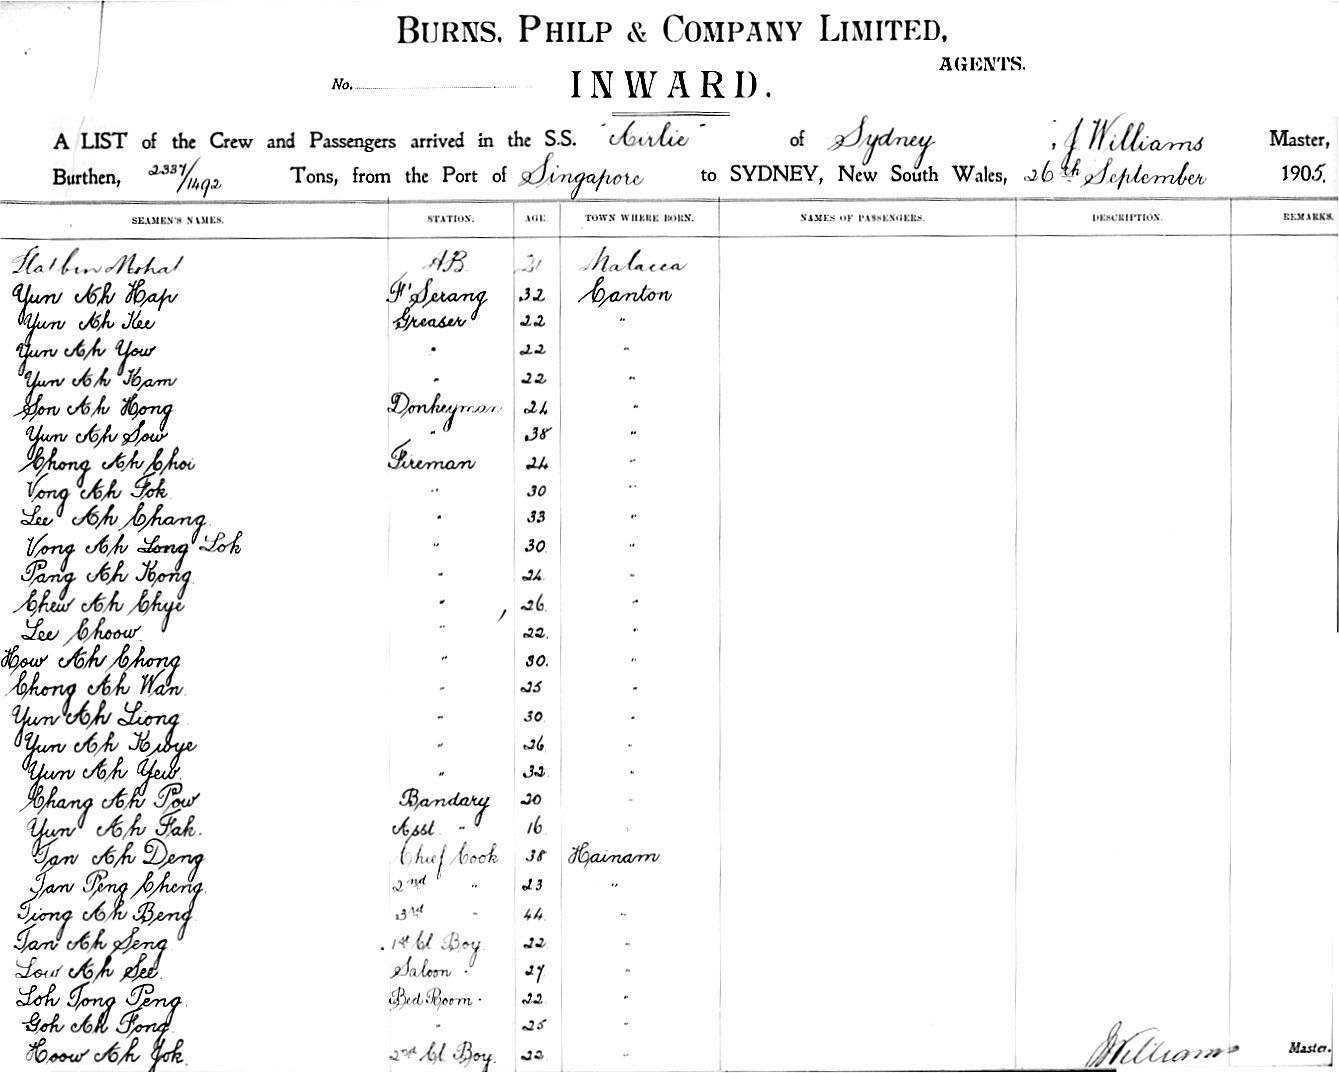 BURNS, PHILP & COMPANY LIMITED,
AGENTS.
No.
INWARD.
A LIST of the Crew and Passengers arrived in the S.S. "Airlie" of Sydney, J Williams Master,
Burthen, 2337/1492 Tons, from the Port of Singapore to SYDNEY, New South Wales, 26th September 1905.
SEAMEN'S NAMES. STATION. AGE. TOWN WHERE BORN. NAMES OF PASSENGERS. DESCRIPTION. REMARKS.
bin Mohat AB 21 Malacca
Yun Ah Hap F' Serang 32 Canton
Yun Ah Kee Greaser 22 "
Yun Ah Yow " 22 "
Yun Ah Kam " 22 "
Son Ah Hong Donkeyman 24 "
Yun Ah Sow " 38 "
Chong Ah Choi Fireman 24 "
Vong Ah Fok " 30 "
Lee Ah Chang " 33 "
Vong Ah Long Lok " 30 "
Pang Ah Kong " 24 "
Chew Ah Chye " 26 "
Lee Choow " 22. "
How Ah Chong " 30. "
Chong Ah Wan " 25 "
Yun Ah Liong " 30 "
Yun Ah Kwye " 26 "
Yun Ah Yew " 32 "
Chang Ah Pow Bandary 20 "
Yun Ah Fak. Asst " 16 "
Tan Ah Deng Chief Cook 38 Hainam
Tan Peng Cheng 2nd " 23 "
Tiong Ah Beng 3rd " 44 "
Tan Ah Seng 1st Cl Boy 22 "
Low Ah See Saloon " 27 "
Loh Tong Peng Bed Room " 22 "
Goh Ah Fong " 25 "
Hoow Ah Yok 2nd Cl Boy. 22 "
J Williams Master.